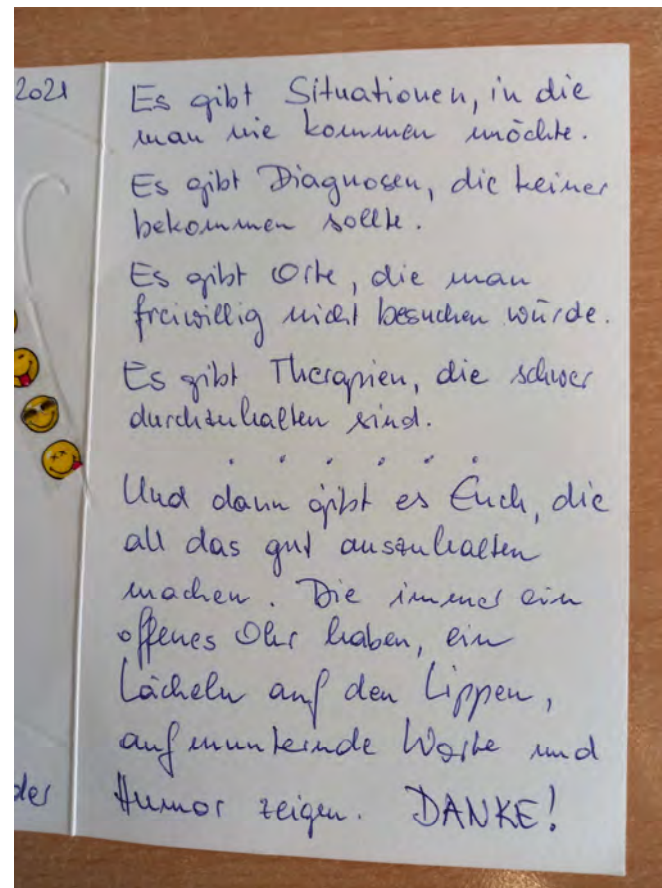 2021
Es gibt Situationen, in die
man nie kommen möchte.
Es gibt Diagnosen, die keiner
bekommen sollte.
Es gibt Orte, die man
freiwillig nicht besuchen würde.
Es gibt Therapien, die schwer
durchzuhalten sind.
. . . . . .
Und dann gibt es Euch, die
all das gut auszuhalten
machen. Die immer ein
offenes Ohr haben, ein
Lächeln auf den Lippen,
aufmunternde Worte und
der
Humor zeigen. DANKE!